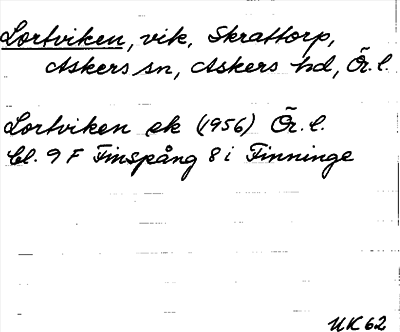 Lortviken, vik, Skrattorp,
Askers sn, Askers hd, Ör. l.
Lortviken ek (1956) Ör. l.
bl. 9 F Finspång 8 i Finninge
UK 62